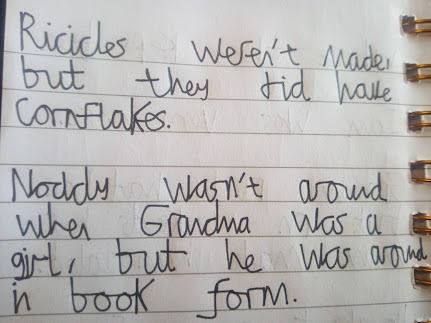 Ricicles weren't made,
but they did have
Cornflakes.
Noddy wasn't around
when Grandma was a
girl, but he was around
in book form.